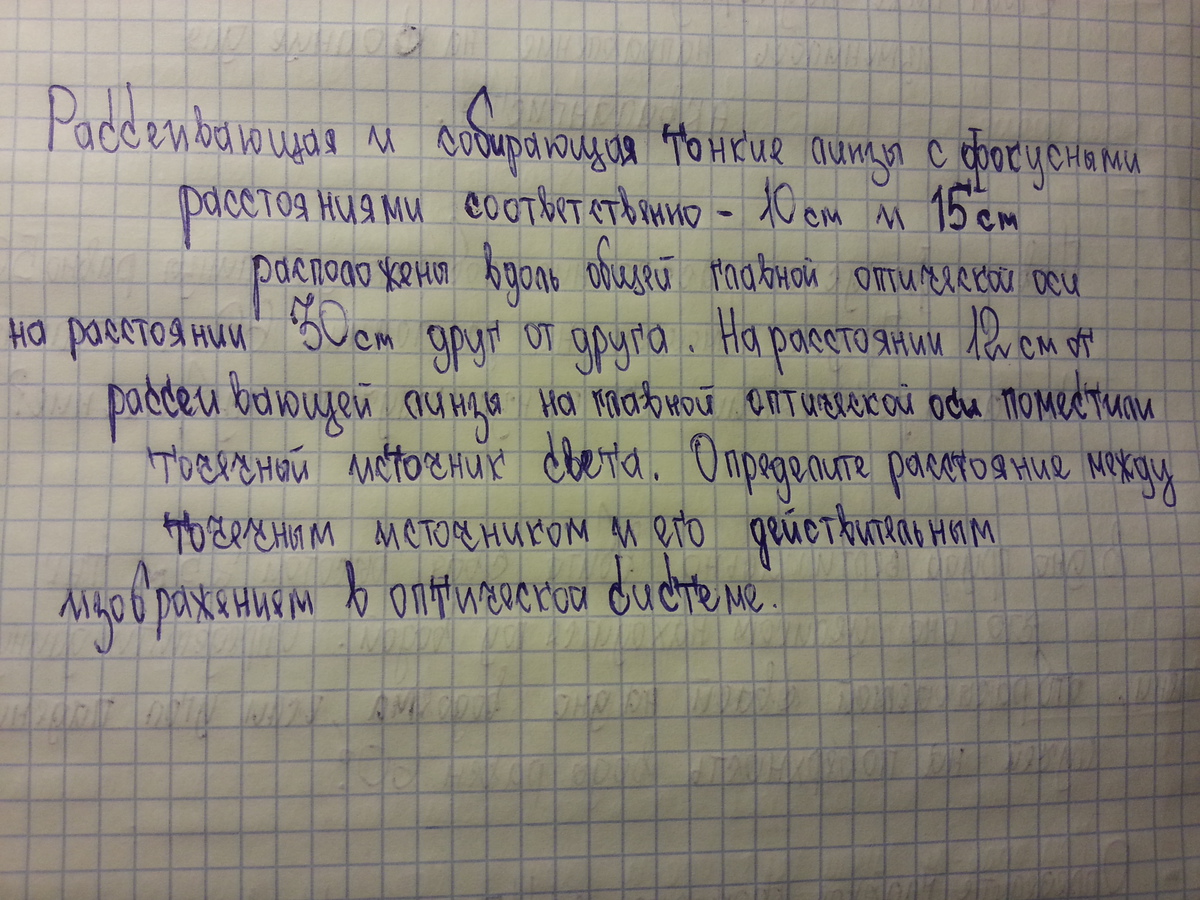 Рассеивающая и собирающая тонкие линзы с фокусными
расстояниями соответственно - 10 см и 15 см
расположены вдоль общей главной оптической оси
на расстоянии 30 см друг от друга. На расстоянии 12 см от
рассеивающей линзы на главной оптической оси поместили
точечный источник света. Определите расстояние между
точечным источником и его действительным
изображением в оптической системе.